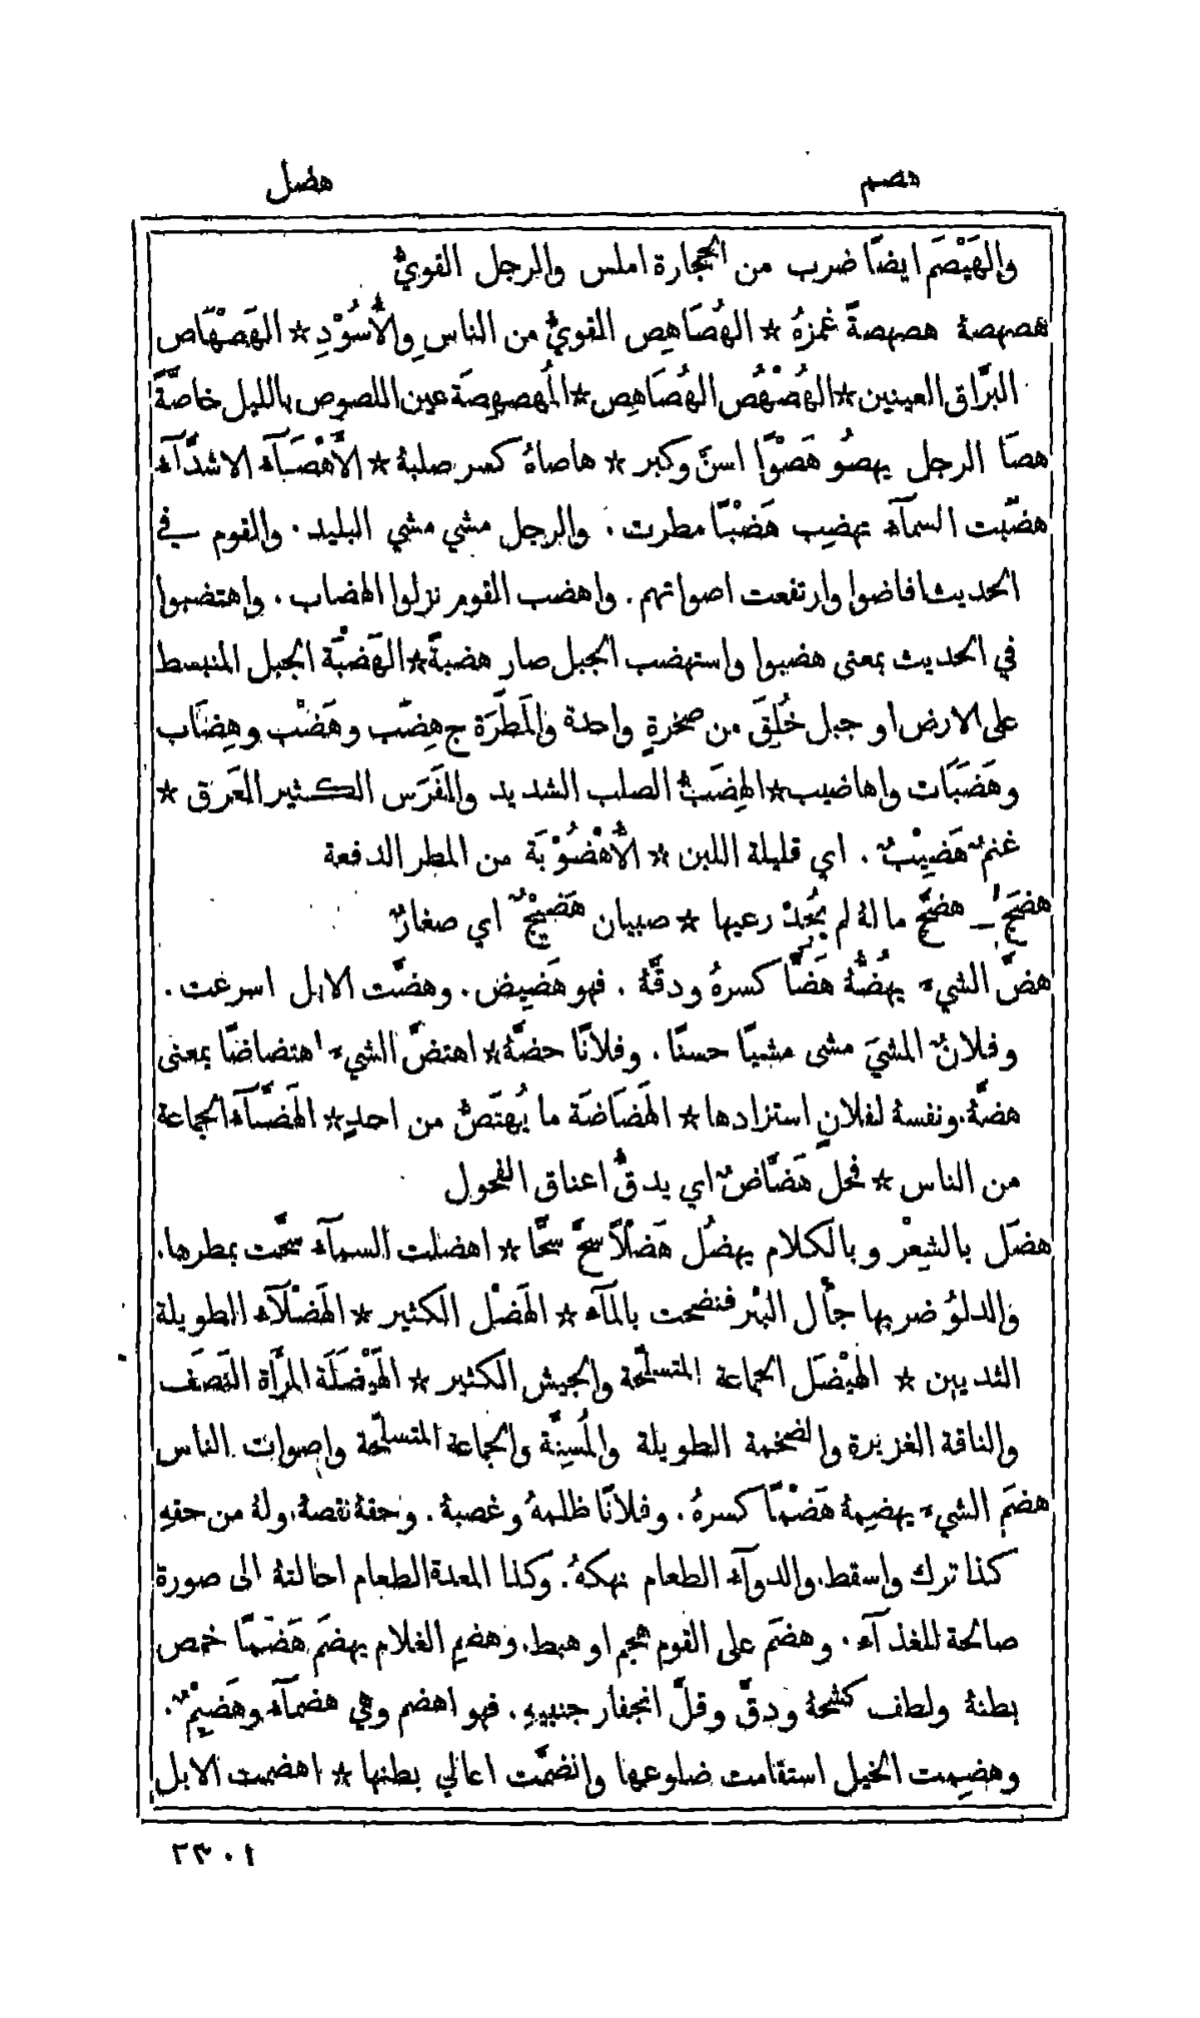 هصم
هضل
والهَيْصَم ايضًا ضرب من الحجارة املس والرجل القويُّ
هصهصهٔ هصهصةً غمزهُ * الهُصَاهِص القويُّ من الناس والأُسُوْدِ * الهَصْهَاص
البرَّاق العينين * الهُصْهُص الهُصَاهِص * المُهصهِصَة عين اللصوص بالليل خاصَّةً
هصَا الرجل يهصُو هَصْوًا اسنَّ وكبر * هاصاهُ كسر صلبهٔ * الأَهْصَآء الاشدَّآء
هضَبت السمآء تهضِب هَضْبًا مطرت . والرجل مشى مشي البليد . والقوم في
الحديث افاضوا وارتفعت اصواتهم . واهضب القوم نزلوا الهضاب . واهتضبوا
في الحديث بمعنى هضبوا واستهضب الجبل صار هضبةً * الهَضْبَة الجبل المنبسط
على الارض او جبل خُلِقَ من صخرةٍ واحدة والمَطَرَة ج هِضَب وهَضْب وهِضَاب
وهَضَبَات واهاضيب * الهِضَبُّ الصلب الشديد والفَرَس الكثير العَرَق *
غنمٌ هَضِيْبٌ . اي قليلة اللبن * الأُهْضُوْبَة من المطر الدفعة
هضَجَ ـ هضَّج مالهٔ لم يُجِدْ رعيها * صبيان هَضِيْجٌ اي صغارٌ
هضَّ الشيءَ يهُضُّهٔ هَضًّا كسرهُ ودقَّهٔ . فهو هَضِيض . وهضَّت الابل اسرعت .
وفلانٌ المشيَ مشى مشيًا حسنًا . وفلانًا حضَّهٔ * اهتضَّ الشيءَ اهتضاضًا بمعنى
هضَّهٔ . ونفسهٔ لفلانٍ استزادها * الهَضَاضَة ما يُهتَضُّ من احدٍ * الهَضَّآء الجماعة
من الناس * فحلٌ هَضَّاضٌ اي يدقُّ اعناق الفحول
هضَل بالشِعْر وبالكلام يهضُل هَضْلًا سحَّ سحًّا * اهضلت السمآء سحَّت بمطرها .
والدلوُ ضربها جال البئر فنضحت بالمآء * الهَضْل الكثير * الهَضْلَآء الطويلة
الثديين * الهَيْضَل الجماعة المتسلّحة والجيش الكثير * الهَيْضَلَة المرأة النَصَف
والناقة الغزيرة والضخمة الطويلة والمُسِنَّة والجماعة المتسلّحة واصوات الناس
هضَم الشيءَ يهضِمهٔ هَضْمًا كسرهُ . وفلانًا ظلمهُ وغصبهٔ . وحقهٔ نقصهٔ . ولهٔ من حقهِ
كذا ترك واسقط . والدوآء الطعام نهكهُ . وكذا المعدة الطعام احالتهٔ الى صورة
صالحة للغذآء . وهضَم على القوم هجم او هبط . وهضِم الغلام يهضَم هَضَمًا خمص
بطنهٔ ولطف كشحهٔ ودقَّ وقلَّ انجفار جنبيهِ . فهو اهضم وهي هضمآء وهَضِيْمٌ .
وهضِمت الخيل استقامت ضلوعها وانضمَّت اعالي بطنها * اهضمت الابل
٢٣٠١